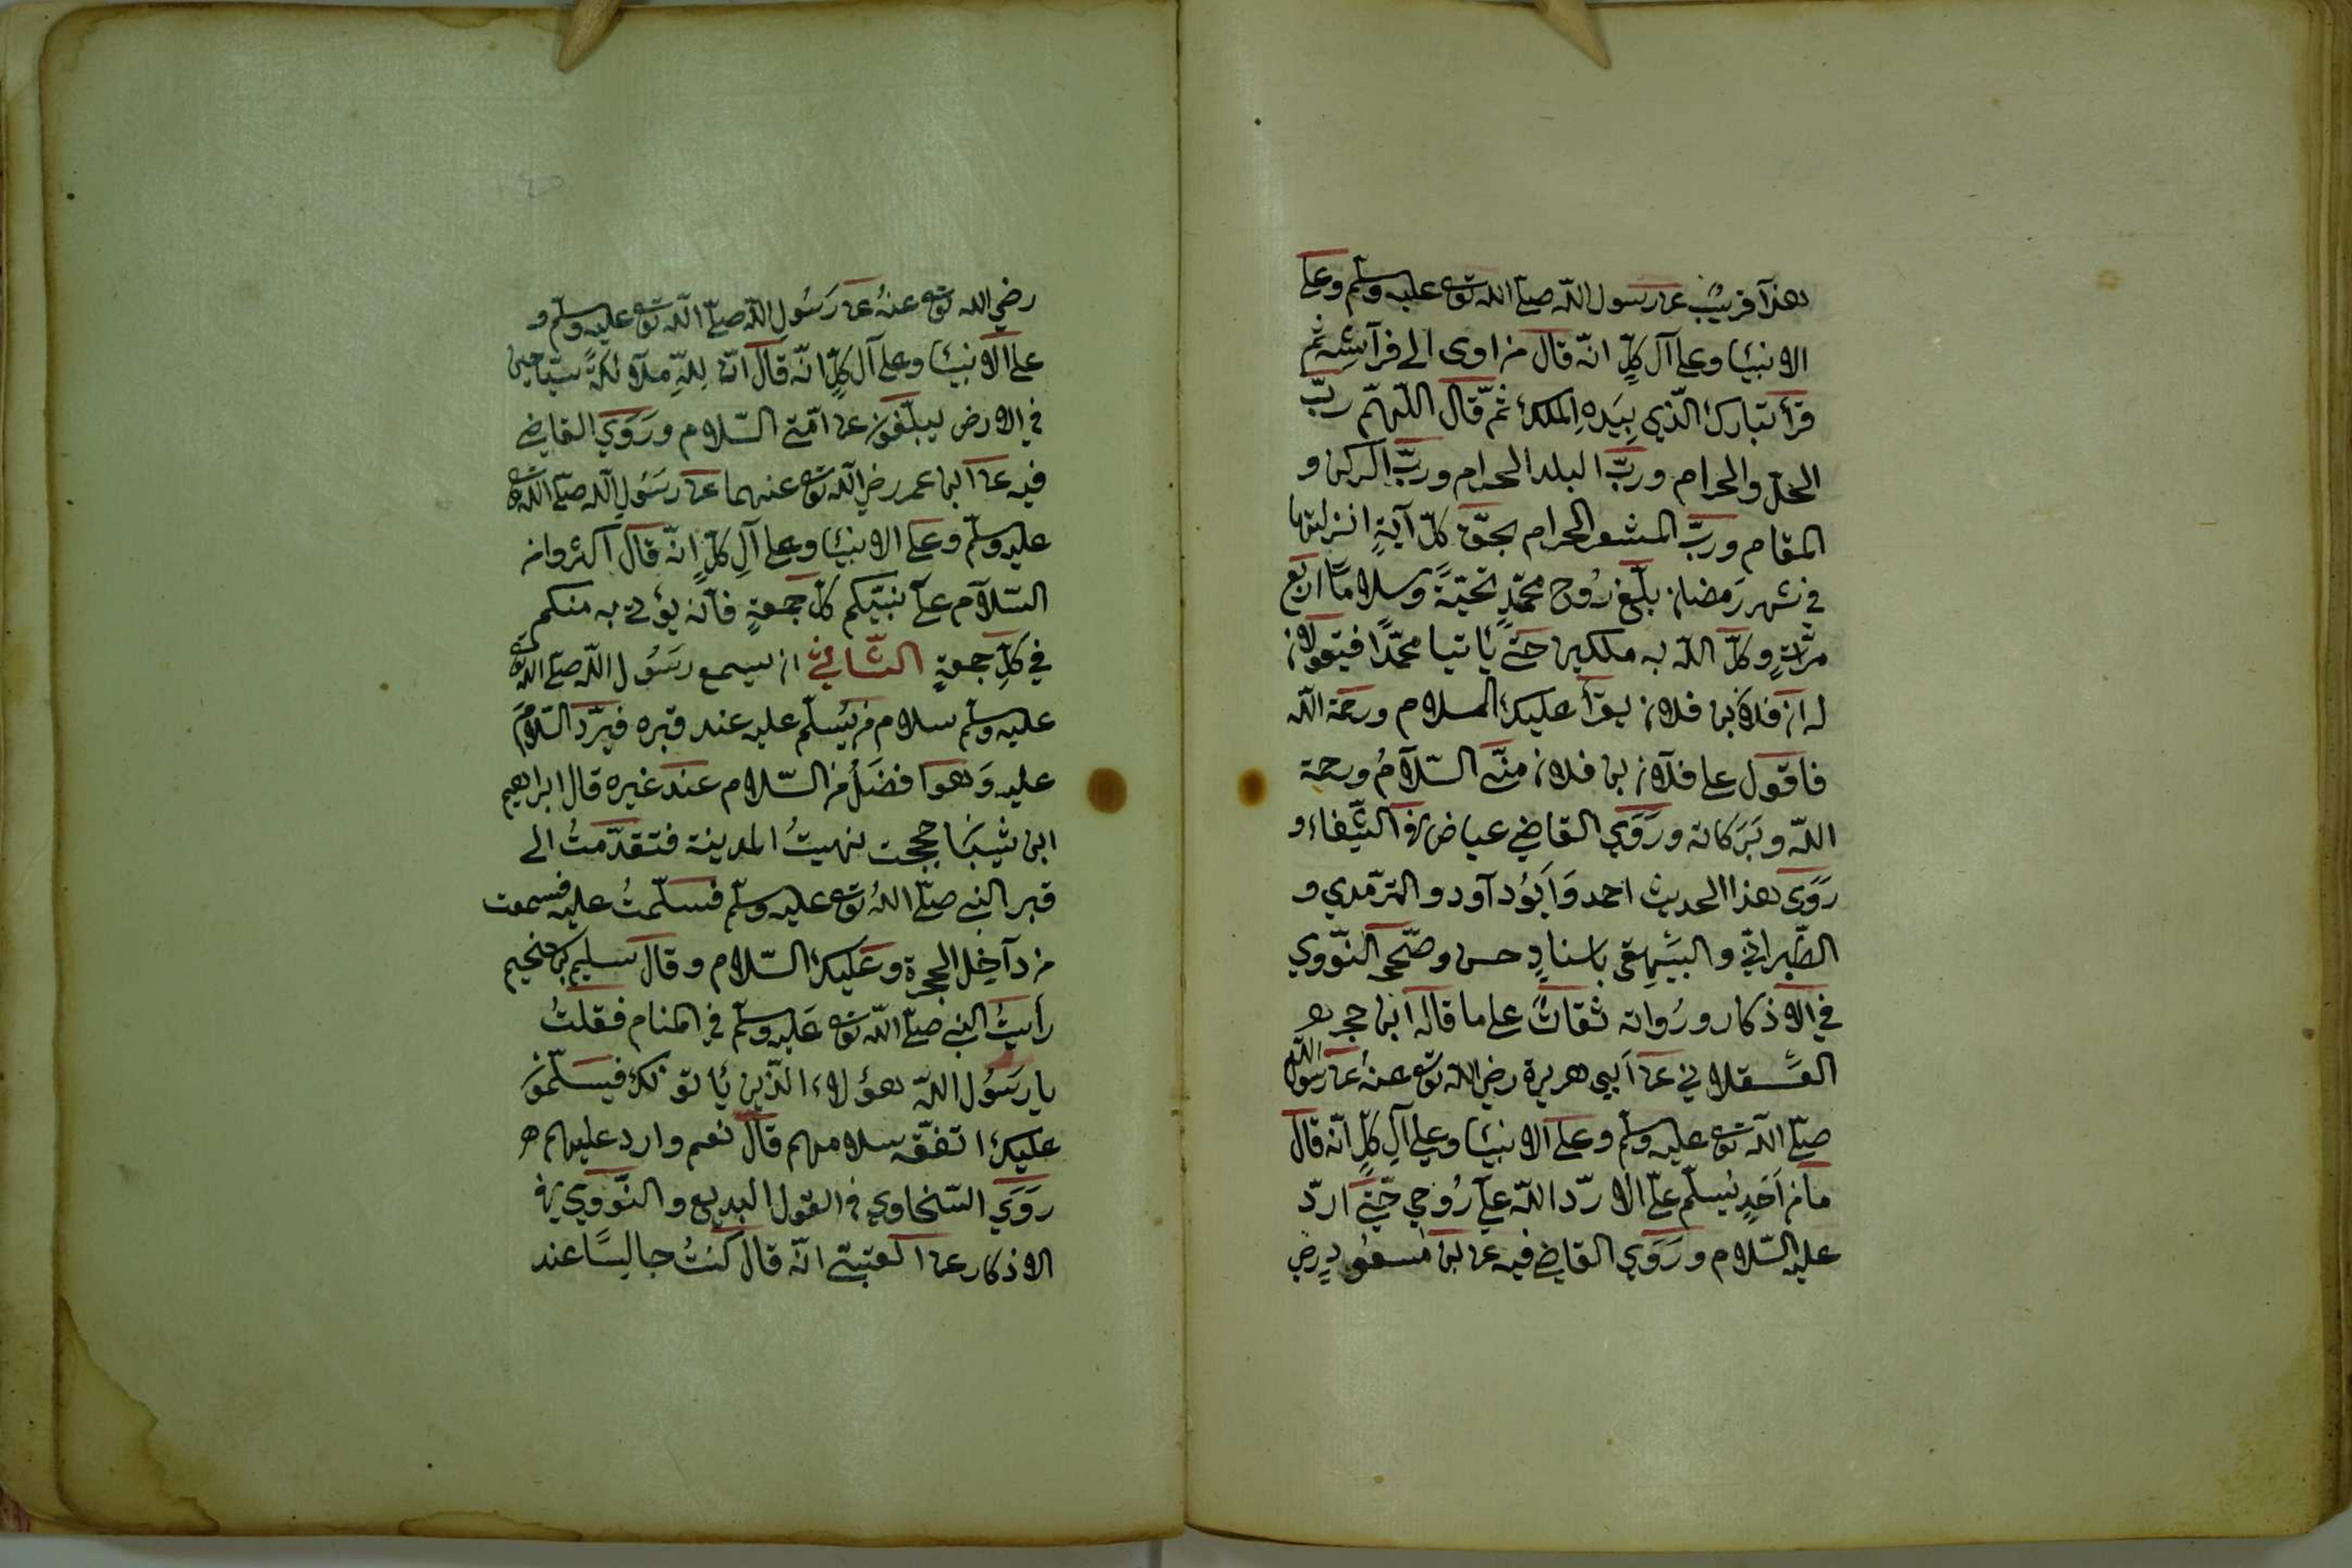 هذا قريب عن رسول الله صلى الله تع عليه وسلم وعلى
الانبيا وعلى آل كلّ انّه قال من اوى الى فرآشه ثم
قرأ تبارك الّذي بيده الملك ثمّ قال اللّهمّ ربّ
الحلّ والحرام وربّ البلد الحرام وربّ الركن و
المقام وربّ المشعر الحرام بحقّ كلّ آيةٍ انزلتها
في شهر رمضان بلّغ رُوح محمّدٍ تحيّةً وسلاماً اربع
مرّاتٍ وكلّ اللّه به ملكين حتّى يأتيا محمّدًا فيقولان
له ان فلان بن فلان يقرأ عليك السلام ورحمة اللّه
فاقول على فلآن بن فلان منّى السّلآمُ ورحمة
اللّه وبَرَكاته ورَوَي القاضي عياض في الشّفاء و
رَوَى هذا الحديث احمد وَاَبُو دآود والترّمدي و
الطّبرانيّ والبيَهِقى باسنادٍ حسن وصّححه النّووي
في الاذكار ورُواته ثقاتٌ على ما قاله ابن حجر هـ
العَسقلاني عن اَبي هريرة رضي اللّه تع عنهُ عن رسول اللّه
صلّى اللّه تع عليه وسلم وعلى الانبيا وعلى آلِ كلٍّ انّه قال
ما من اَحَدٍ يُسلّم علىّ الا ردّ اللّه علىّ رُوحي حتّى اردّ
عليه السّلام ورَوَي القاضي فيه عن بن مسعُودٍ رضي
رضي الله تع عنهُ عن رَسُولِ اللّه صلّى اللّه تع عليه وسلّم و
على الانبيا وعلى آل كلٍّ انّه قال انّ لِلّهِ ملآئكةً سيّاحين
في الارض يبلّغون عن امّتى السّلام ورَوَي القاضي
فيه عن ابن عمر رضي اللّه تع عنهما عن رسَول اللّه صلّى اللّه تع
عليه وسلّم وعلى الانبيا وعلى آلِ كلٍّ انّه قال اكثروا من
السّلآم علىَ نبيّكم كلّ جمعةٍ فآنه يؤتى به منكم
في كلّ جمعةٍ الثّانيْ ان يسمع رسَوُل اللّه صلّى اللّه تع
عليه وسلّم سلام من يُسلّم عليه عند قبره فيردّ السّلامَ
عليه وَهو افضَلُ من السّلام عند غيره قال ابراهيم
ابن شيبَا حججت نهيتُ المدينة فتقدّمتُ الى
قبر النبي صلّى اللهُ تع عليه وسلّم فسلّمتُ عليه فسمعت
من دآخِل الحجرة وعَليك السّلام وقال سليم بن سحيم
رأيتُ النبي صلّى اللّه تع عَليه وسلّم في المنام فقلتُ
يا رسَوُل اللّه هؤلاء الّذين يأتونك فيسَلّمون
عليك اتفقّه سلامهم قال نعم وارد عليهم هـ
رَوَي السّخاوي في القول البديع والنّووَي في
الاذكار عن العتبىّ انّه قال كنتُ جالِسًا عند